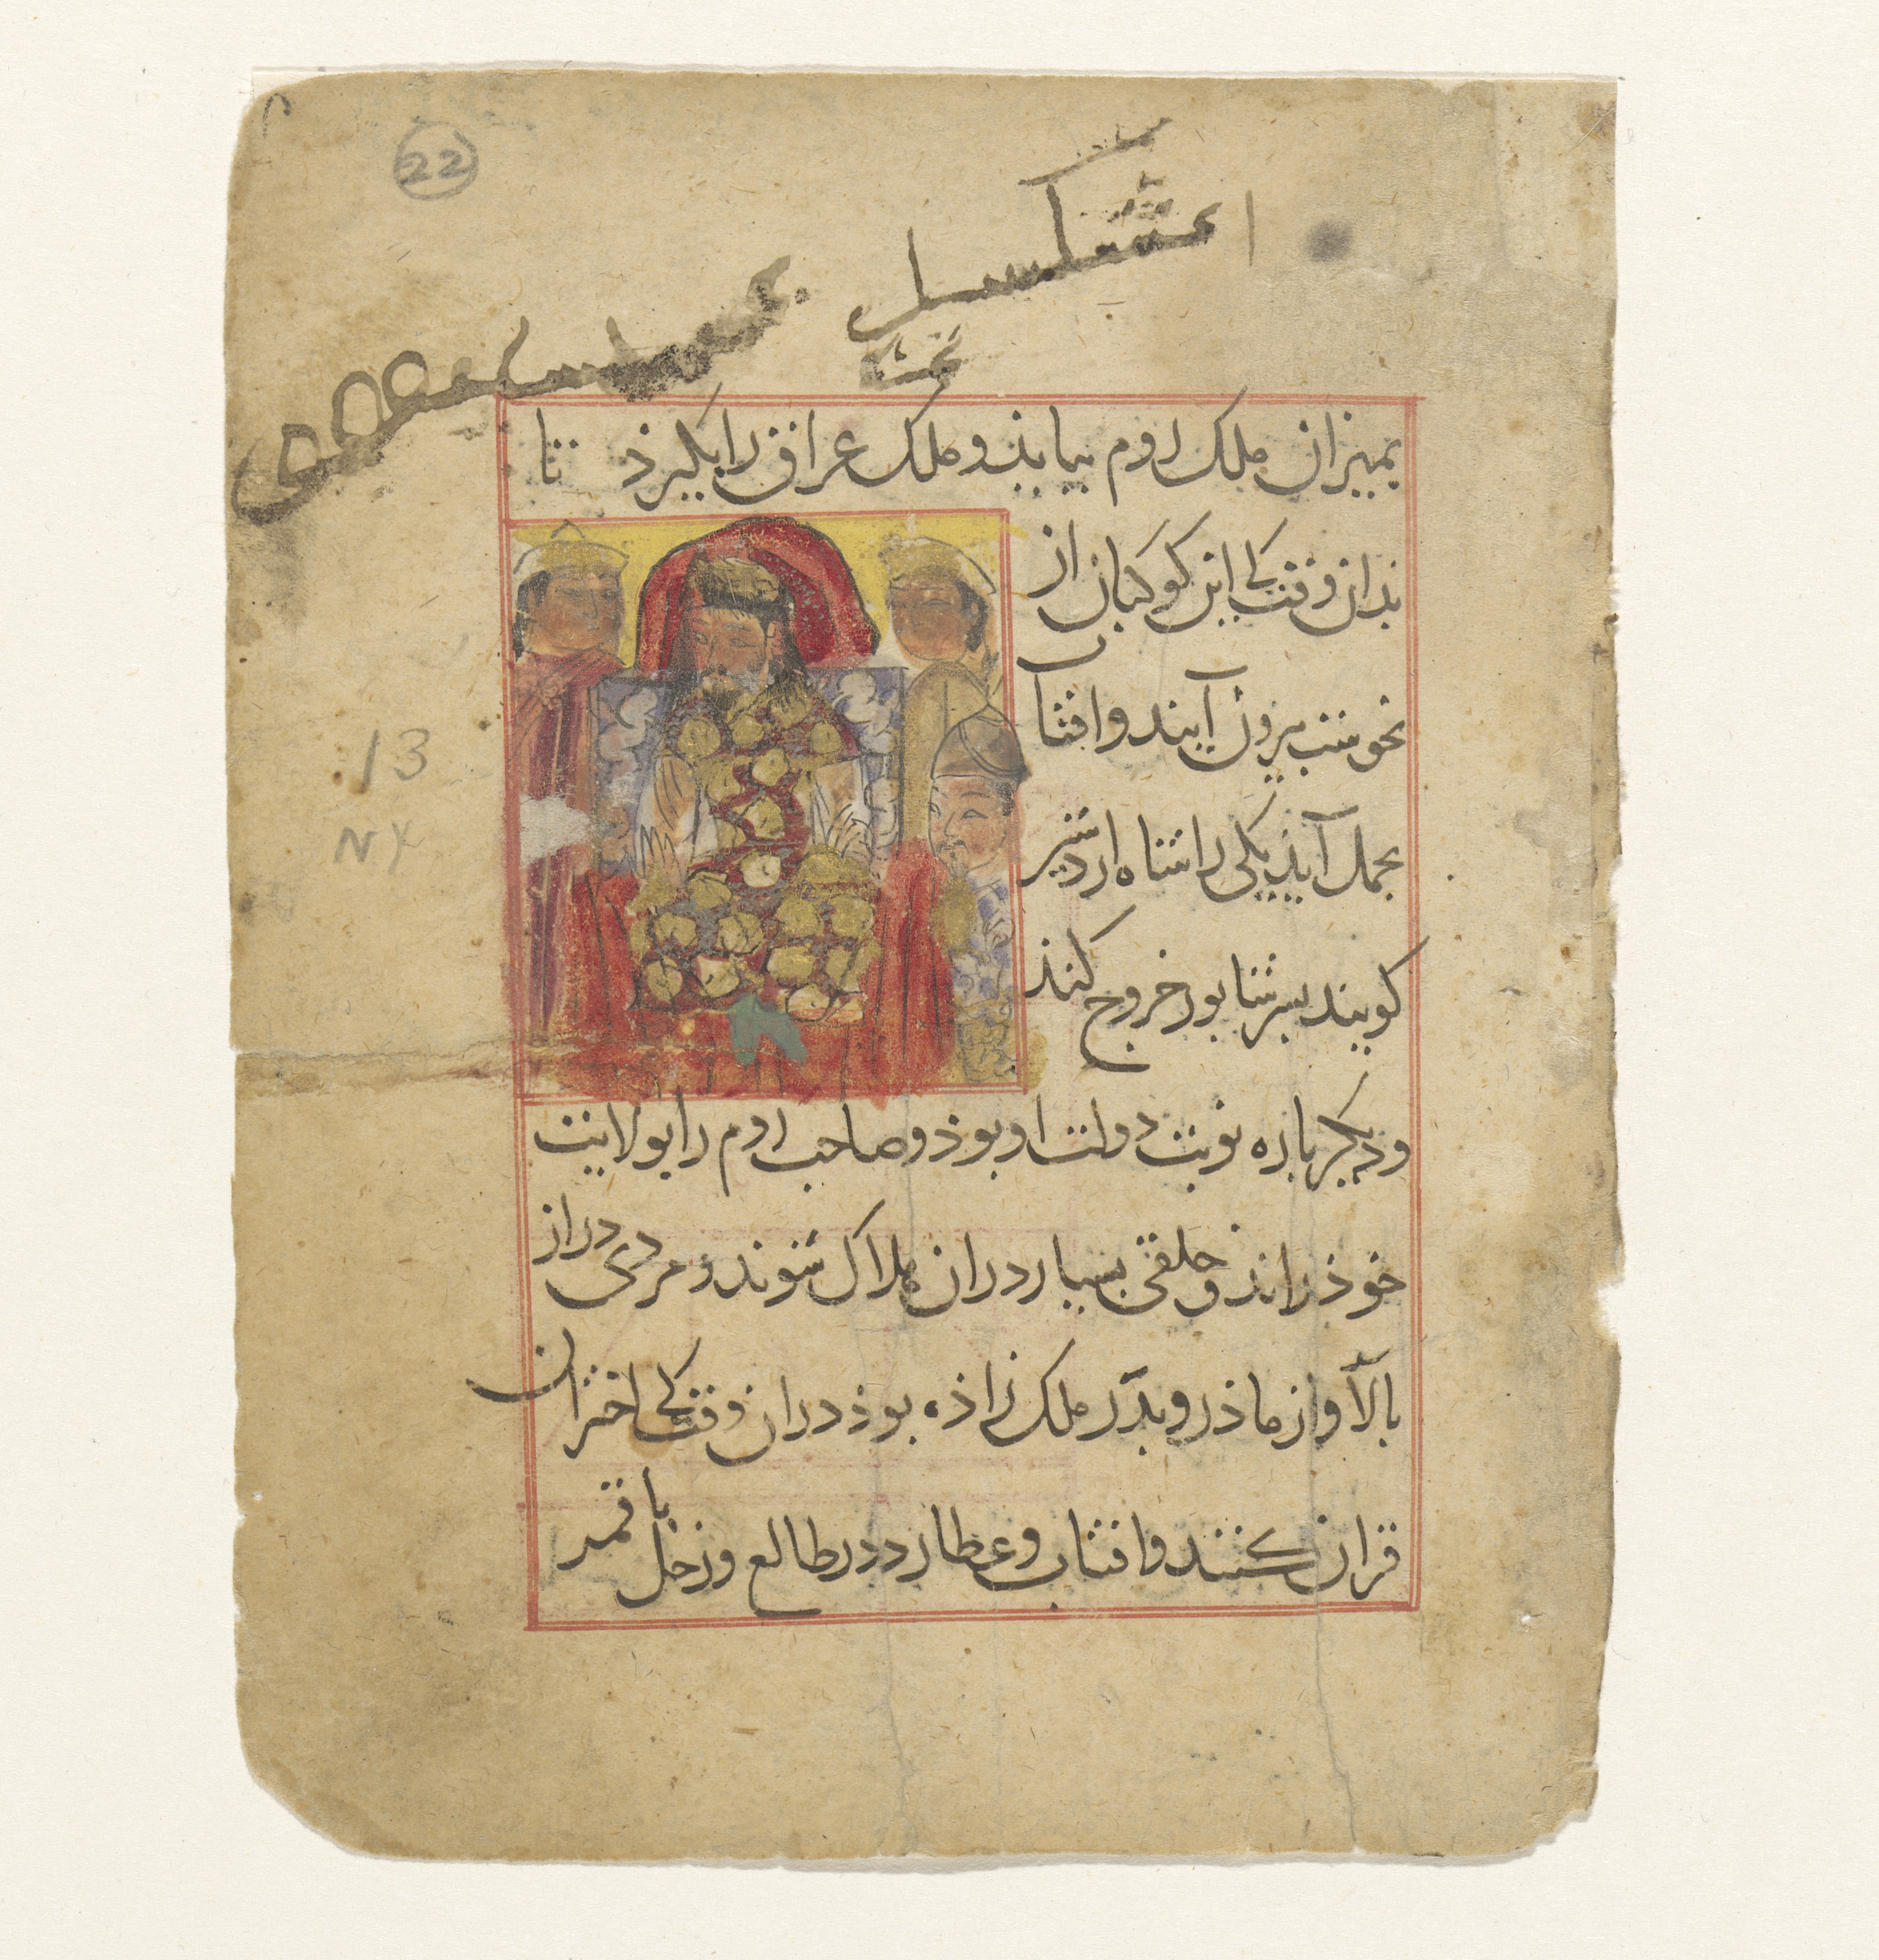 22
بمیزان ملک روم بیاید و ملک عراق را بگیرذ تا
بدان وقت کی این کوکبان از
نحوست بیرون آیند و افتاب
بحمل آیذ یکی را شاه اردشیر
کویند بسر شابور خروج کند
و دیگر باره نوبت دولت او بوذ و صاحب روم را بولایت
خوذ راند و خلقی بسیار دران هلاک شوند و مردی دراز
بالا و از ماذر و بدر ملک زاذه بوذ دران وقت کی اختران
قران کنند و افتاب و عطارد در طالع و زحل با قمر
13
NY